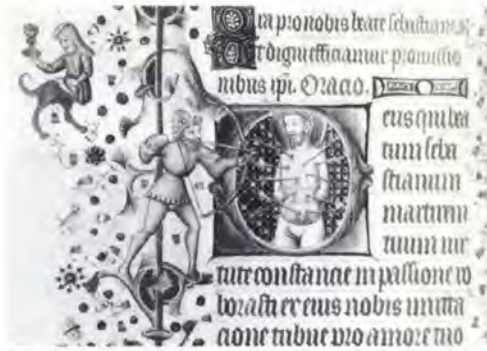 Ora pro nobis beate sebastiane
Ut digni efficiamur promissio
nibus xpi. Oracio.
Deus qui bea
tum seba
stianum
martirem
tuum uir
tute constancie in passione ro
borasti ex eius nobis imita
cione tribue pro amore tuo